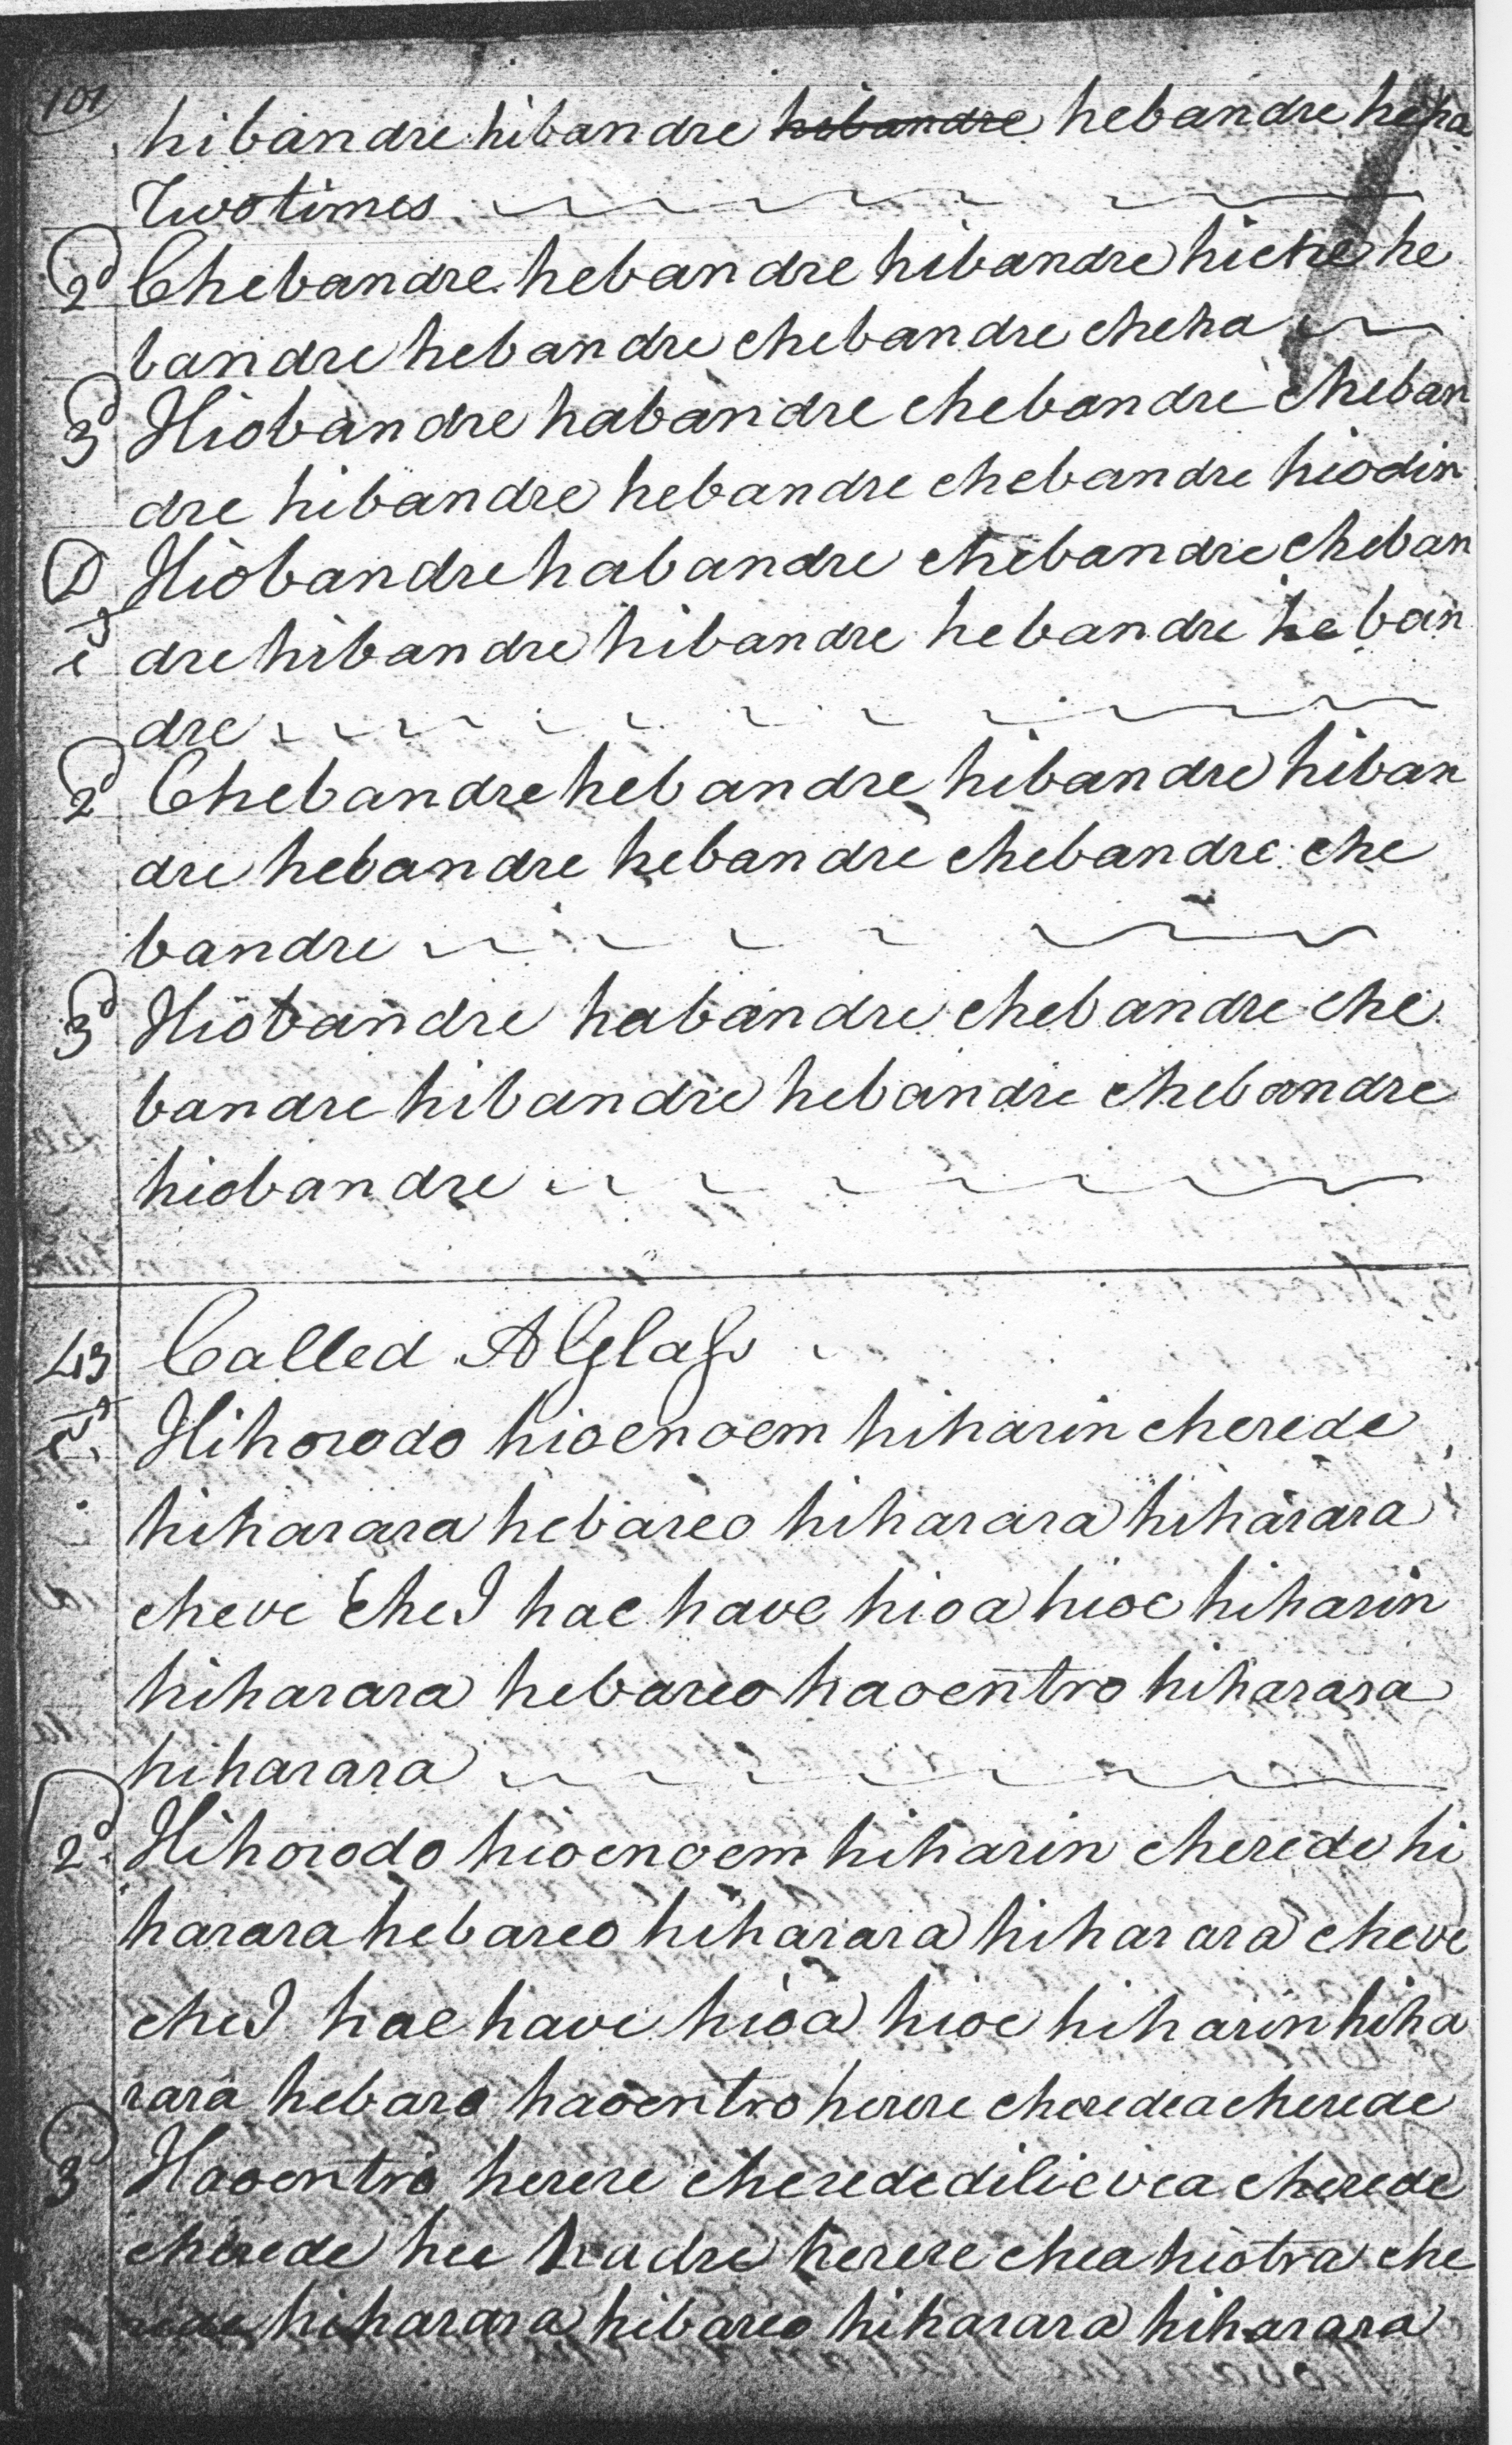 101
hibandre hibandre hibandre hebandre heha
Two times
2d Chebandre hebandre hibandre hiche he
bandre hebandre chebandre cheha
3d Hiobandre habandre chebandre cheban
dre hibandre hebandre chebandre hiodin
D Hiobandre habandre chebandre cheban
dre hibandre hibandre hebandre heban
dre
2d Chebandre hebandre hibandre hiban
dre hebandre hebandre chebandre che
bandre
3d Hiobandre habandre chebandre che
bandre hibandre hebandre chebandre
hiobandre
43 Called A Glass
Hihorodo hioenoem hiharin cherede
hiharara hebareo hiharara hiharara
cheve cheI hae have hioa hioe hiharin
hiharara hebareo haoentro hiharara
hiharara
2d Hihorodo hioenoem hiharin cherede hi
harara hebareo hiharara hiharara cheve
cheI hae have hioa hioe hiharin hiha
rara hebaro haoentro herere cheredea cherede
3d Haoentro herere cherede dilievea cherede
cherede hee hadre herere chea hiotra che
rede hiharara hibareo hiharara hiharara